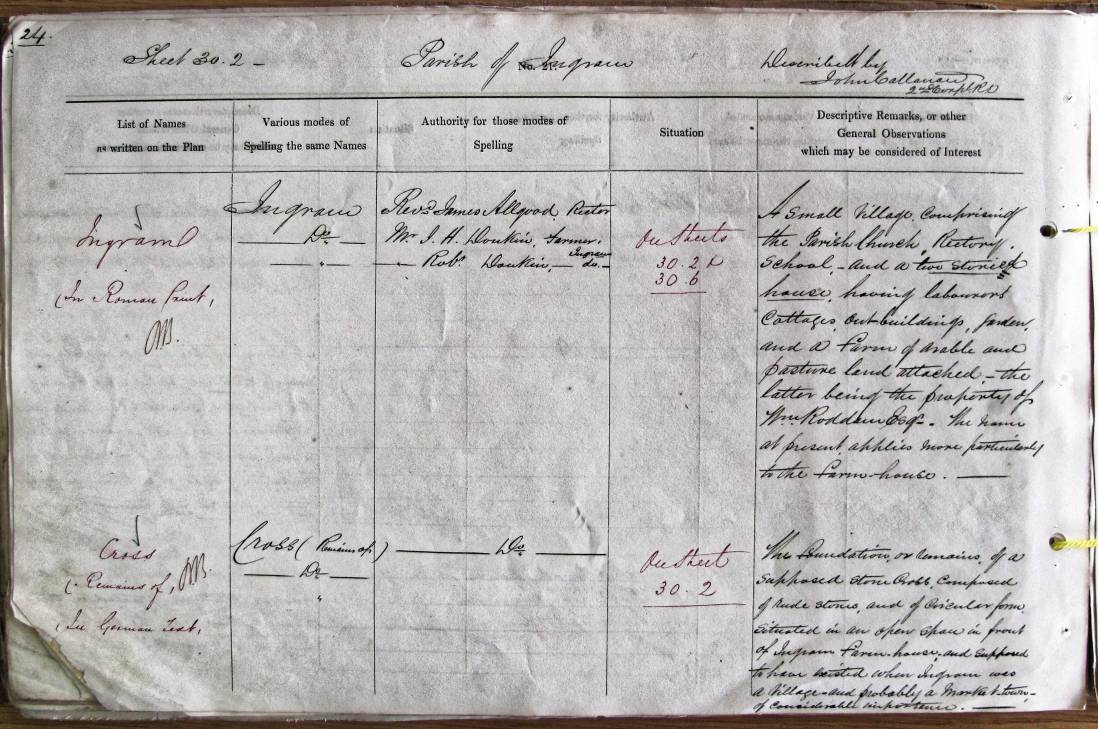 24.
Sheet 30.2 -
Parish of Ingram
No. 21.
Described by
John Callanan
2nd Corpl RE
List of Names
as written on the Plan
Various modes of
Spelling the same Names
Authority for those modes of
Spelling
Situation
Descriptive Remarks, or other
General Observations
which may be considered of Interest
Ingram
(In Roman Print,
Ingram
Do
"
Revd. James Allgood, Rector
Mr. J. H. Donkin, farmer.
Ingram
Robt. Donkin, — do. -
On Sheets
30.2 &
30.6
A small Village, comprising
the Parish Church, Rectory,
School, - and a two storied
house, having labourers
Cottages, out-buildings, garden,
and a Farm of arable and
pasture land attached, - the
latter being the property of
Wm. Roddam Esqr. - The name
at present, applies more particularly
to the Farm-house. —
Cross
(Remains of,
(In German Text,
Cross (Remains of)
Do
"
Do
On Sheet
30.2
The foundation, or remains, of a
supposed stone Cross, Composed
of rude stones, and of Circular form,
Situated in an open space in front
of Ingram Farm-house, and supposed
to have existed when Ingram was
a Village - and probably a Market-town -
of considerable importance. —